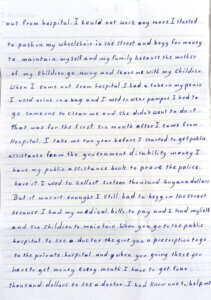 out from hospital. I could not work any more I started
to pushin my wheelchair in the street and begg for money
to maintain myself and my family because the mother
of my Children go away and leave me with my Children
When I came out from hospital I had a tube in my penis
I used urine in a bag and I used to wear pampas I had to
get someone to clean me and she didn't want to do it
that was for the first six month after I came from
Hospital. I take me two year before I started to get public
assistance from the government disability money I
have my public assistance book to prove the police
have it I used to collect sixteen thousand Guyana dollars
But it wasn't enough I still had to begg in the street
because I had my medical bills to pay and I had myself
and six Children to maintain. When you go to the public
hospital to see a doctor the give you a prescription to go
to the private hospital and when you going there you
have to get money every month I have to get four
thousand dollars to see a doctor. I had know one to help me